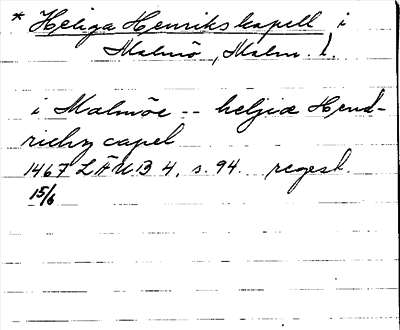 * Heliga Henriks kapell i
Malmö, Malm. l.
i Malmöe -- helgiæ Hend-
richz capel
1467 LÄUB 4, s. 94. regest.
15/6